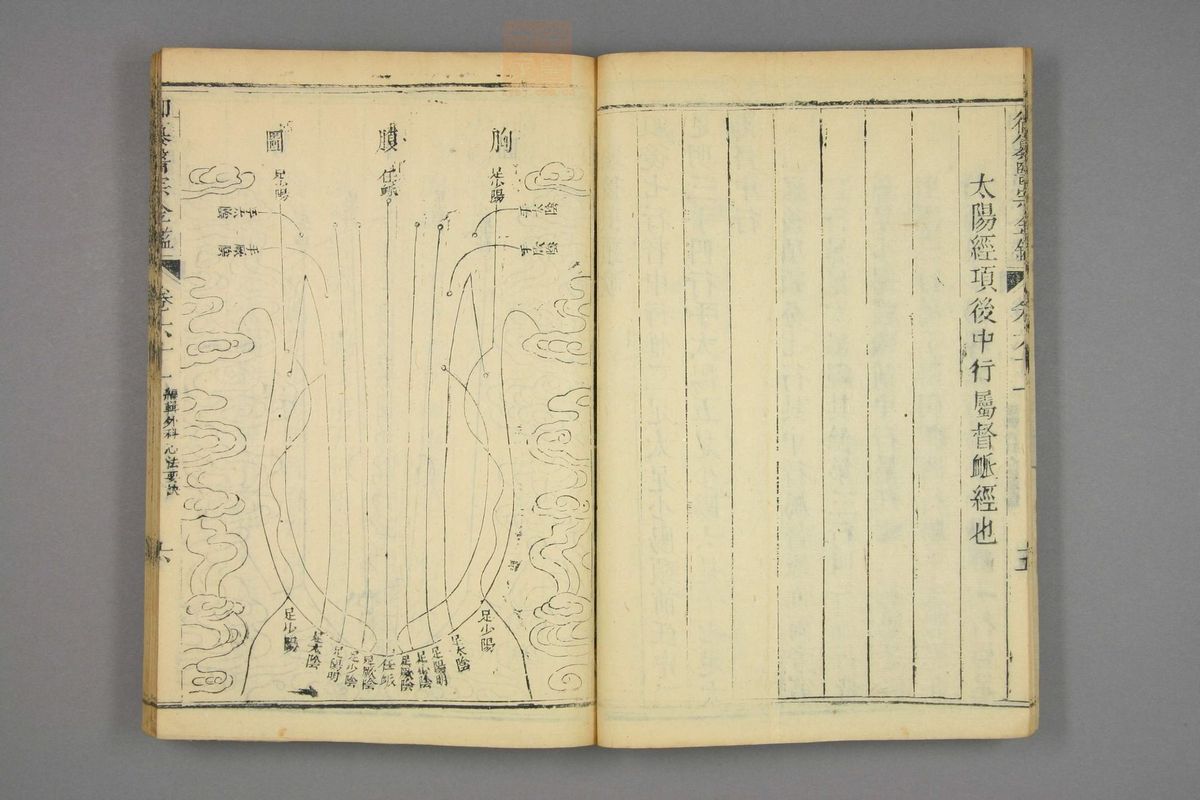 太陽經項後中行屬督脈經也
御纂醫宗金鑑
卷六十一
胸膜圖
足少陽
任脈
足少陽
手太陰
手厥陰
足少陽
足太陰
足陽明
足少陰
足厥陰
任脈
足厥陰
足少陰
足陽明
足太陰
足少陽
御纂醫宗金鑑
卷六十一
編輯外科心法要訣